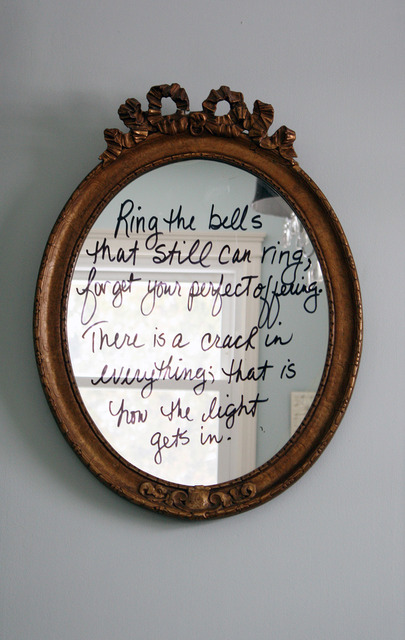 Ring the bells
that still can ring,
forget your perfect offering.
There is a crack in
everything; that is
how the light
gets in.